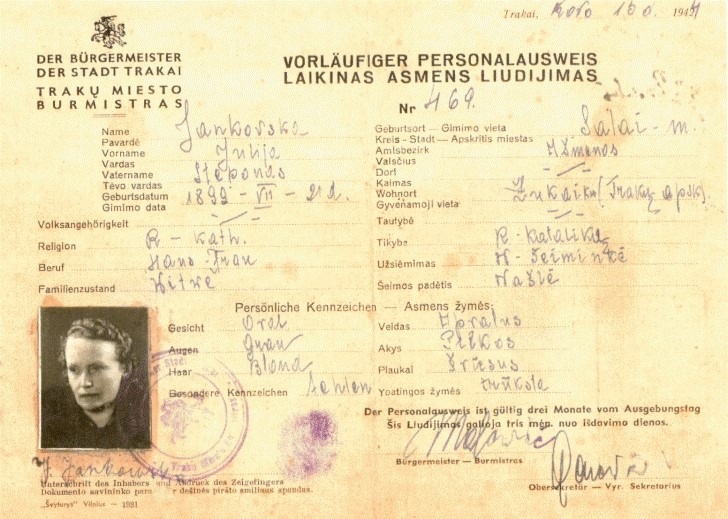 Trakai, 194
DER BÜRGERMEISTER
DER STADT TRAKAI
TRAKŲ MIESTO
BURMISTRAS
VORLÄUFIGER PERSONALAUSWEIS
LAIKINAS ASMENS LIUDIJIMAS
Nr 469.
Name Jankovska
Pavardė
Vorname Julija
Vardas
Vatername Steponas
Tėvo vardas
Geburtsdatum 1899 - VII - 21 d.
Gimimo data
Volksangehörigkeit
Religion R - kath.
Beruf Haus-Frau
Familienzustand Witwe
Geburtsort — Gimimo vieta Salai - m.
Kreis - Stadt — Apskritis miestas
Amtsbezirk
Valsčius
Dorf
Kaimas
Wohnort (Trakų apsk.)
Gyvenamoji vieta
Tautybė
Tikyba R - Katalikų
Užsiėmimas N - Šeimininkė
Šeimos padėtis Našlė
Persönliche Kennzeichen — Asmens žymės:
Gesicht Oval
Augen Grau
Haar Blond
Besondere Kennzeichen
Veidas Apvalus
Akys Pilkos
Plaukai Šviesus
Ypatingos žymės trūksta
Der Personalausweis ist gültig drei Monate vom Ausgebungstag
Šis Liudijimas galioja tris mėn. nuo išdavimo dienos.
Bürgermeister — Burmistras
Obersekretär — Vyr. Sekretorius
J. Jankowska
Unterschrift des Inhabers und Abdruck des Zeigefingers
Dokumento savininko para r dešinės piršto smiliaus spaudas.
„Švyturys" Vilnius — 1931